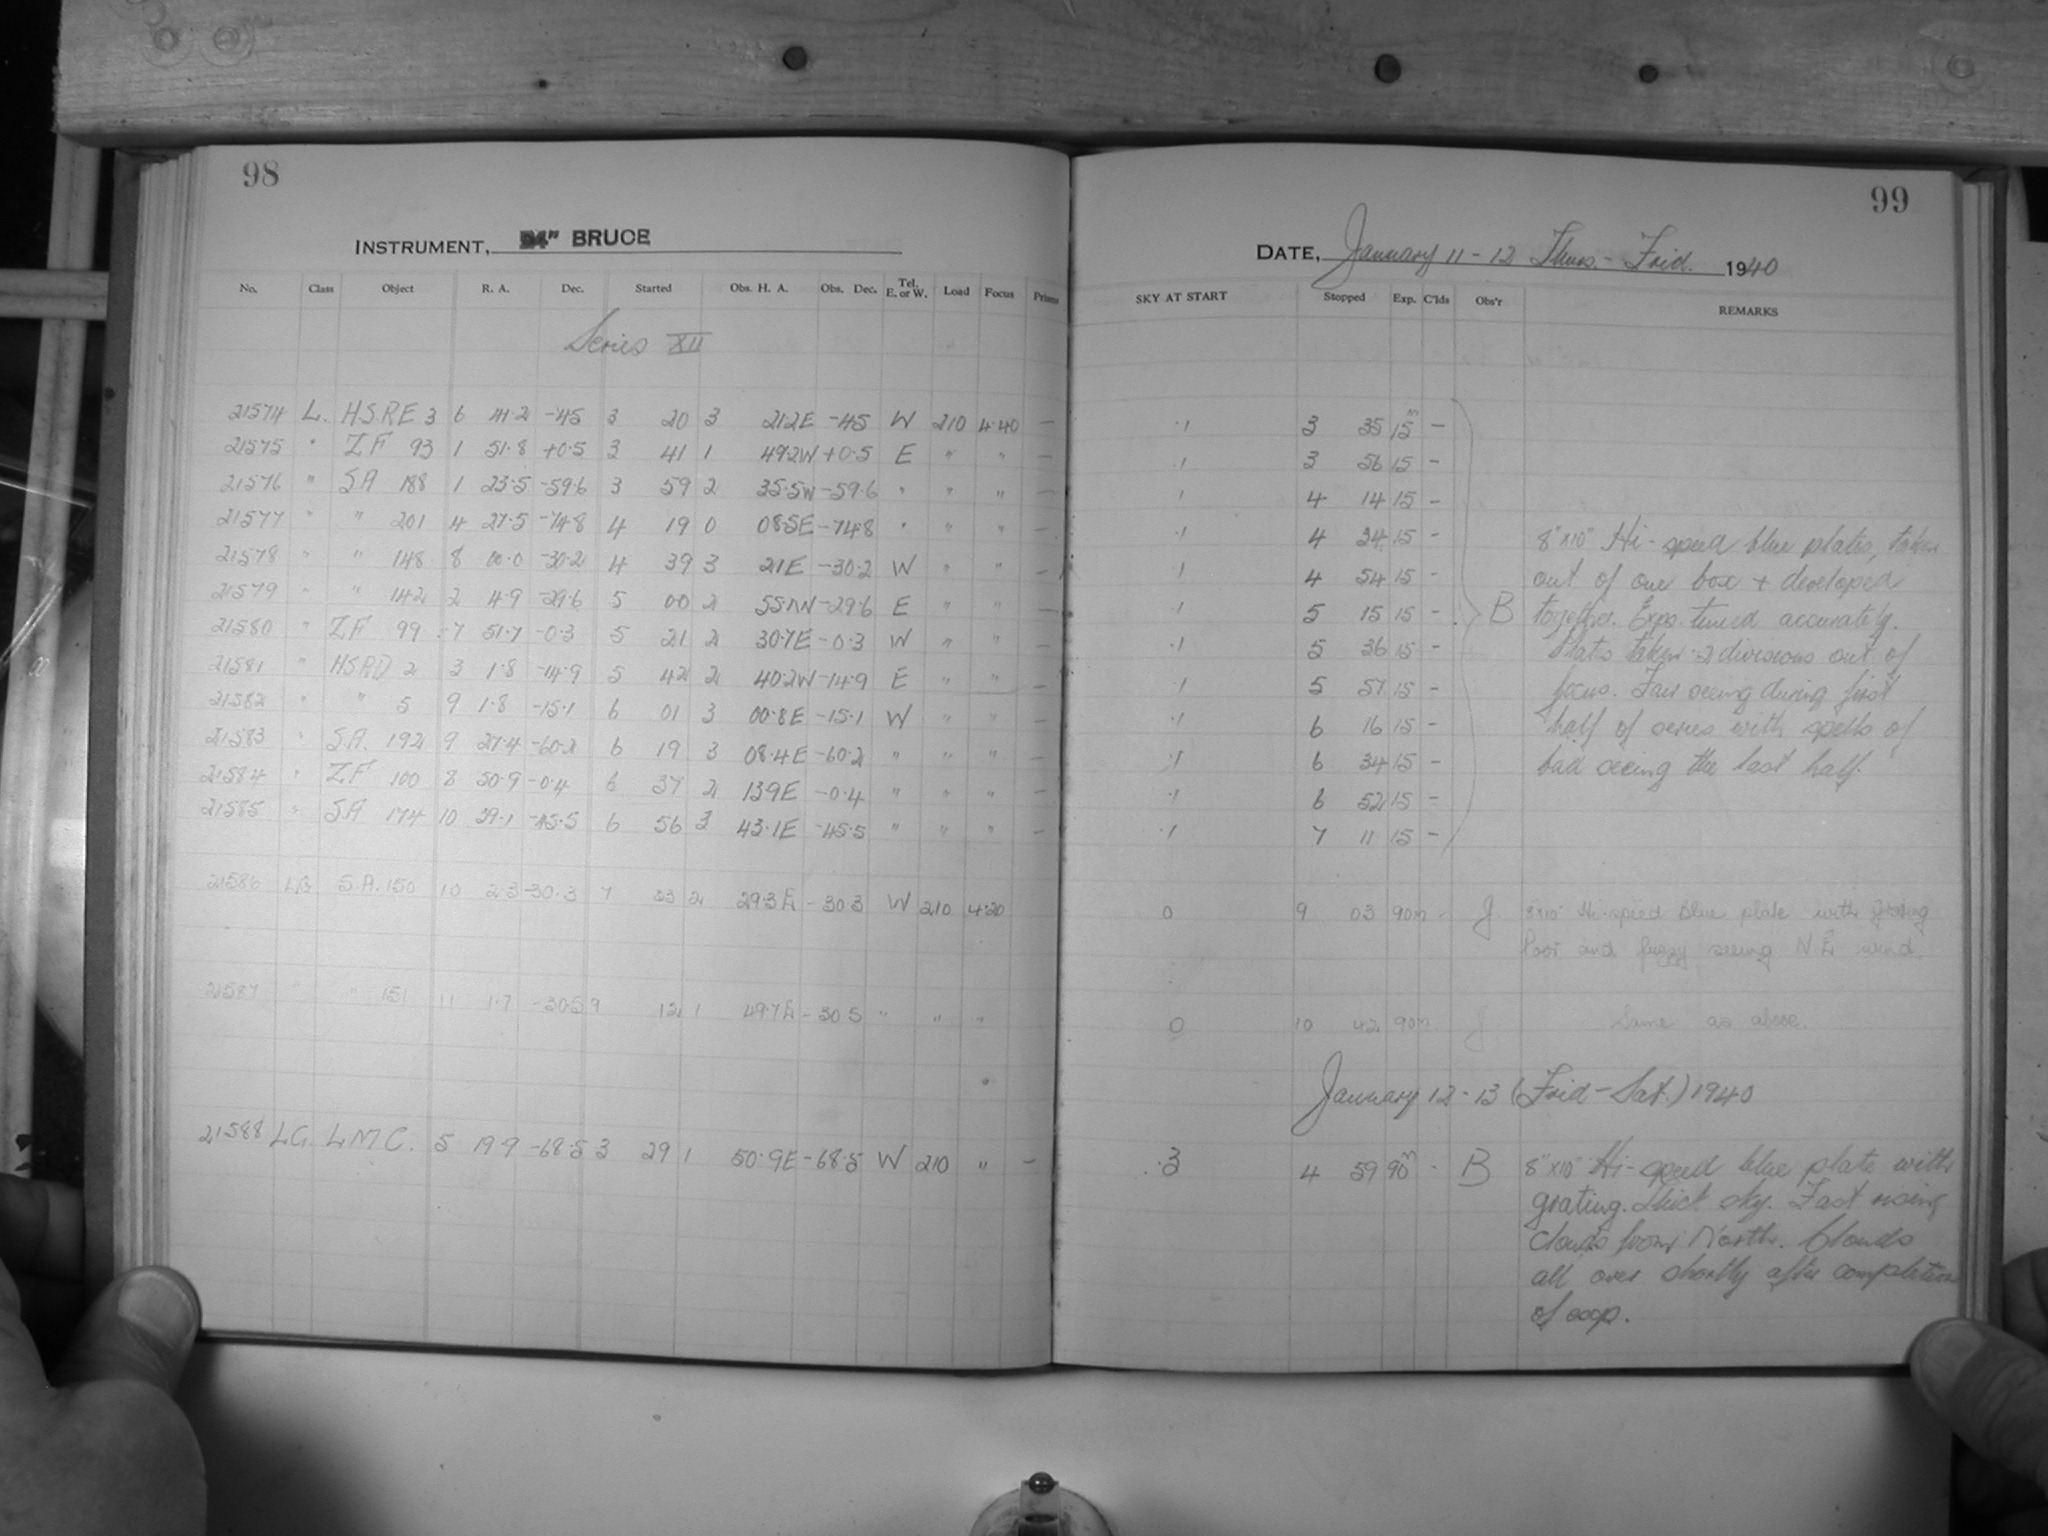 98
INSTRUMENT, 24" BRUCE
No. Class Object R. A. Dec. Started Obs. H. A. Obs. Dec. Tel. E. or W. Load Focus Prisms
Series XII
21574 L. HSRE 3 6 41.2 -45 3 20 3 21.2E -45 W 210 4.40 —
21575 " ZF 93 1 51.8 +0.5 3 41 1 49.2W +0.5 E " " —
21576 " SA 188 1 23.5 -59.6 3 59 2 35.5W -59.6 " " " —
21577 " " 201 4 27.5 -74.8 4 19 0 08.5E -74.8 " " " —
21578 " " 148 8 00.0 -30.2 4 39 3 21E -30.2 W " " —
21579 " " 142 2 4.9 -29.6 5 00 2 W -29.6 E " " —
21580 " ZF 99 7 51.7 -0.3 5 21 2 30.7E -0.3 W " " —
21581 " HSRD 2 3 1.8 -14.9 5 42 2 40.2W -14.9 E " " —
21582 " " 5 9 1.8 -15.1 6 01 3 00.8E -15.1 W " " —
21583 " S.A. 192 9 27.4 -60.2 6 19 3 08.4E -60.2 " " " —
21584 " ZF 100 8 50.9 -0.4 6 37 2 13.9E -0.4 " " " —
21585 " SA 174 10 29.1 -45.5 6 56 3 43.1E -45.5 " " " —
21586 LG S.A. 150 10 2.3 -30.3 7 33 2 29.3E -30.3 W 210 4.20
21587 " " 151 11 1.7 -30.5 9 12 1 49.7E -30.5 " " "
21588 LG. L.M.C. 5 19.9 -68.5 3 29 1 50.9E -68.5 W 210 " —
99
DATE, January 11 - 12 Thurs. - Frid. 1940
SKY AT START Stopped Exp. C'lds Obs'r REMARKS
.1 3 35 15m —
.1 3 56 15 —
.1 4 14 15 —
.1 4 24 15 — 8"x10" Hi-speed blue plates, taken
.1 4 54 15 — out of one box + developed
.1 5 15 15 — B together. Exps. timed accurately.
.1 5 36 15 — Plates taken 2 divisions out of
.1 5 57 15 — focus. Fair seeing during first
.1 6 16 15 — half of series with spells of
.1 6 34 15 — bad seeing the last half.
.1 6 52 15 —
.1 7 11 15 —
0 9 03 90m - J. 8"x10" Hi-speed Blue plate with grating
Poor and fuzzy seeing N.E. wind.
0 10 42 90m J Same as above.
January 12 - 13 (Frid - Sat.) 1940
.3 4 59 90m - B 8"x10" Hi-speed blue plate with
grating. Thick sky. Fast rising
clouds from North. Clouds
all over shortly after completion
of exp.